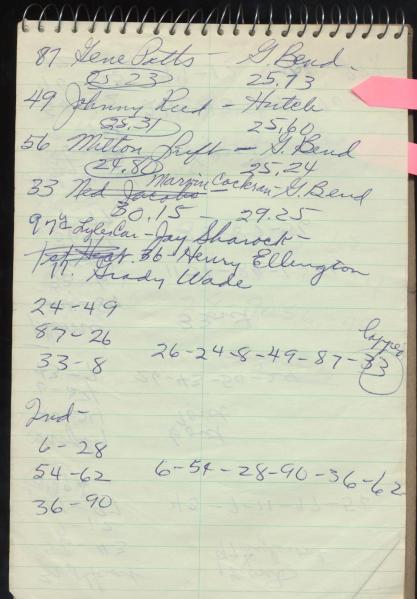 87 Gene Potts - G. Bend.
25.23 25.13
49 Johnny Reed - Hutch
25.31 25.60
56 Milton - G. Bend
24.80 25.24
Marvin Cockran
33 Ned Jacobs - G. Bend
30.15 - 29.25
97 Lyles Car - Jay Sharock -
1st Heat 36 - Henry Ellington
Grady Wade
24 - 49
87 - 26
lapped
33 - 8 26 - 24 - 8 - 49 - 87 - 33
2nd -
6 - 28
54 - 62 6 - 54 - 28 - 90 - 36 - 62
36 - 90